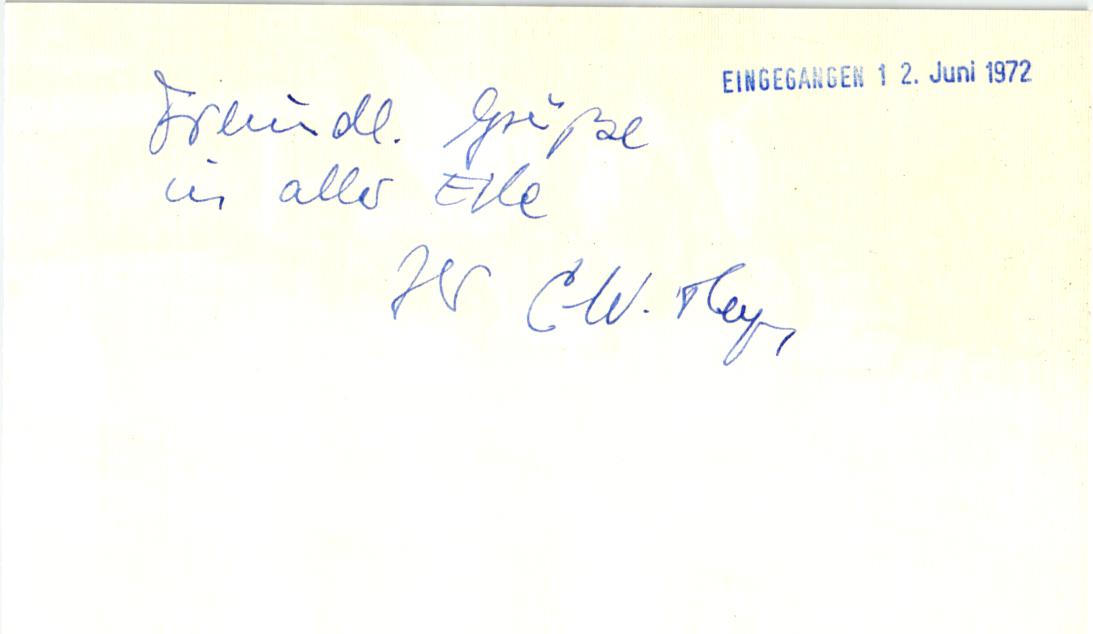 EINGEGANGEN 1 2. Juni 1972
Freundl. Grüße
in aller Eile
Ihr C. W.